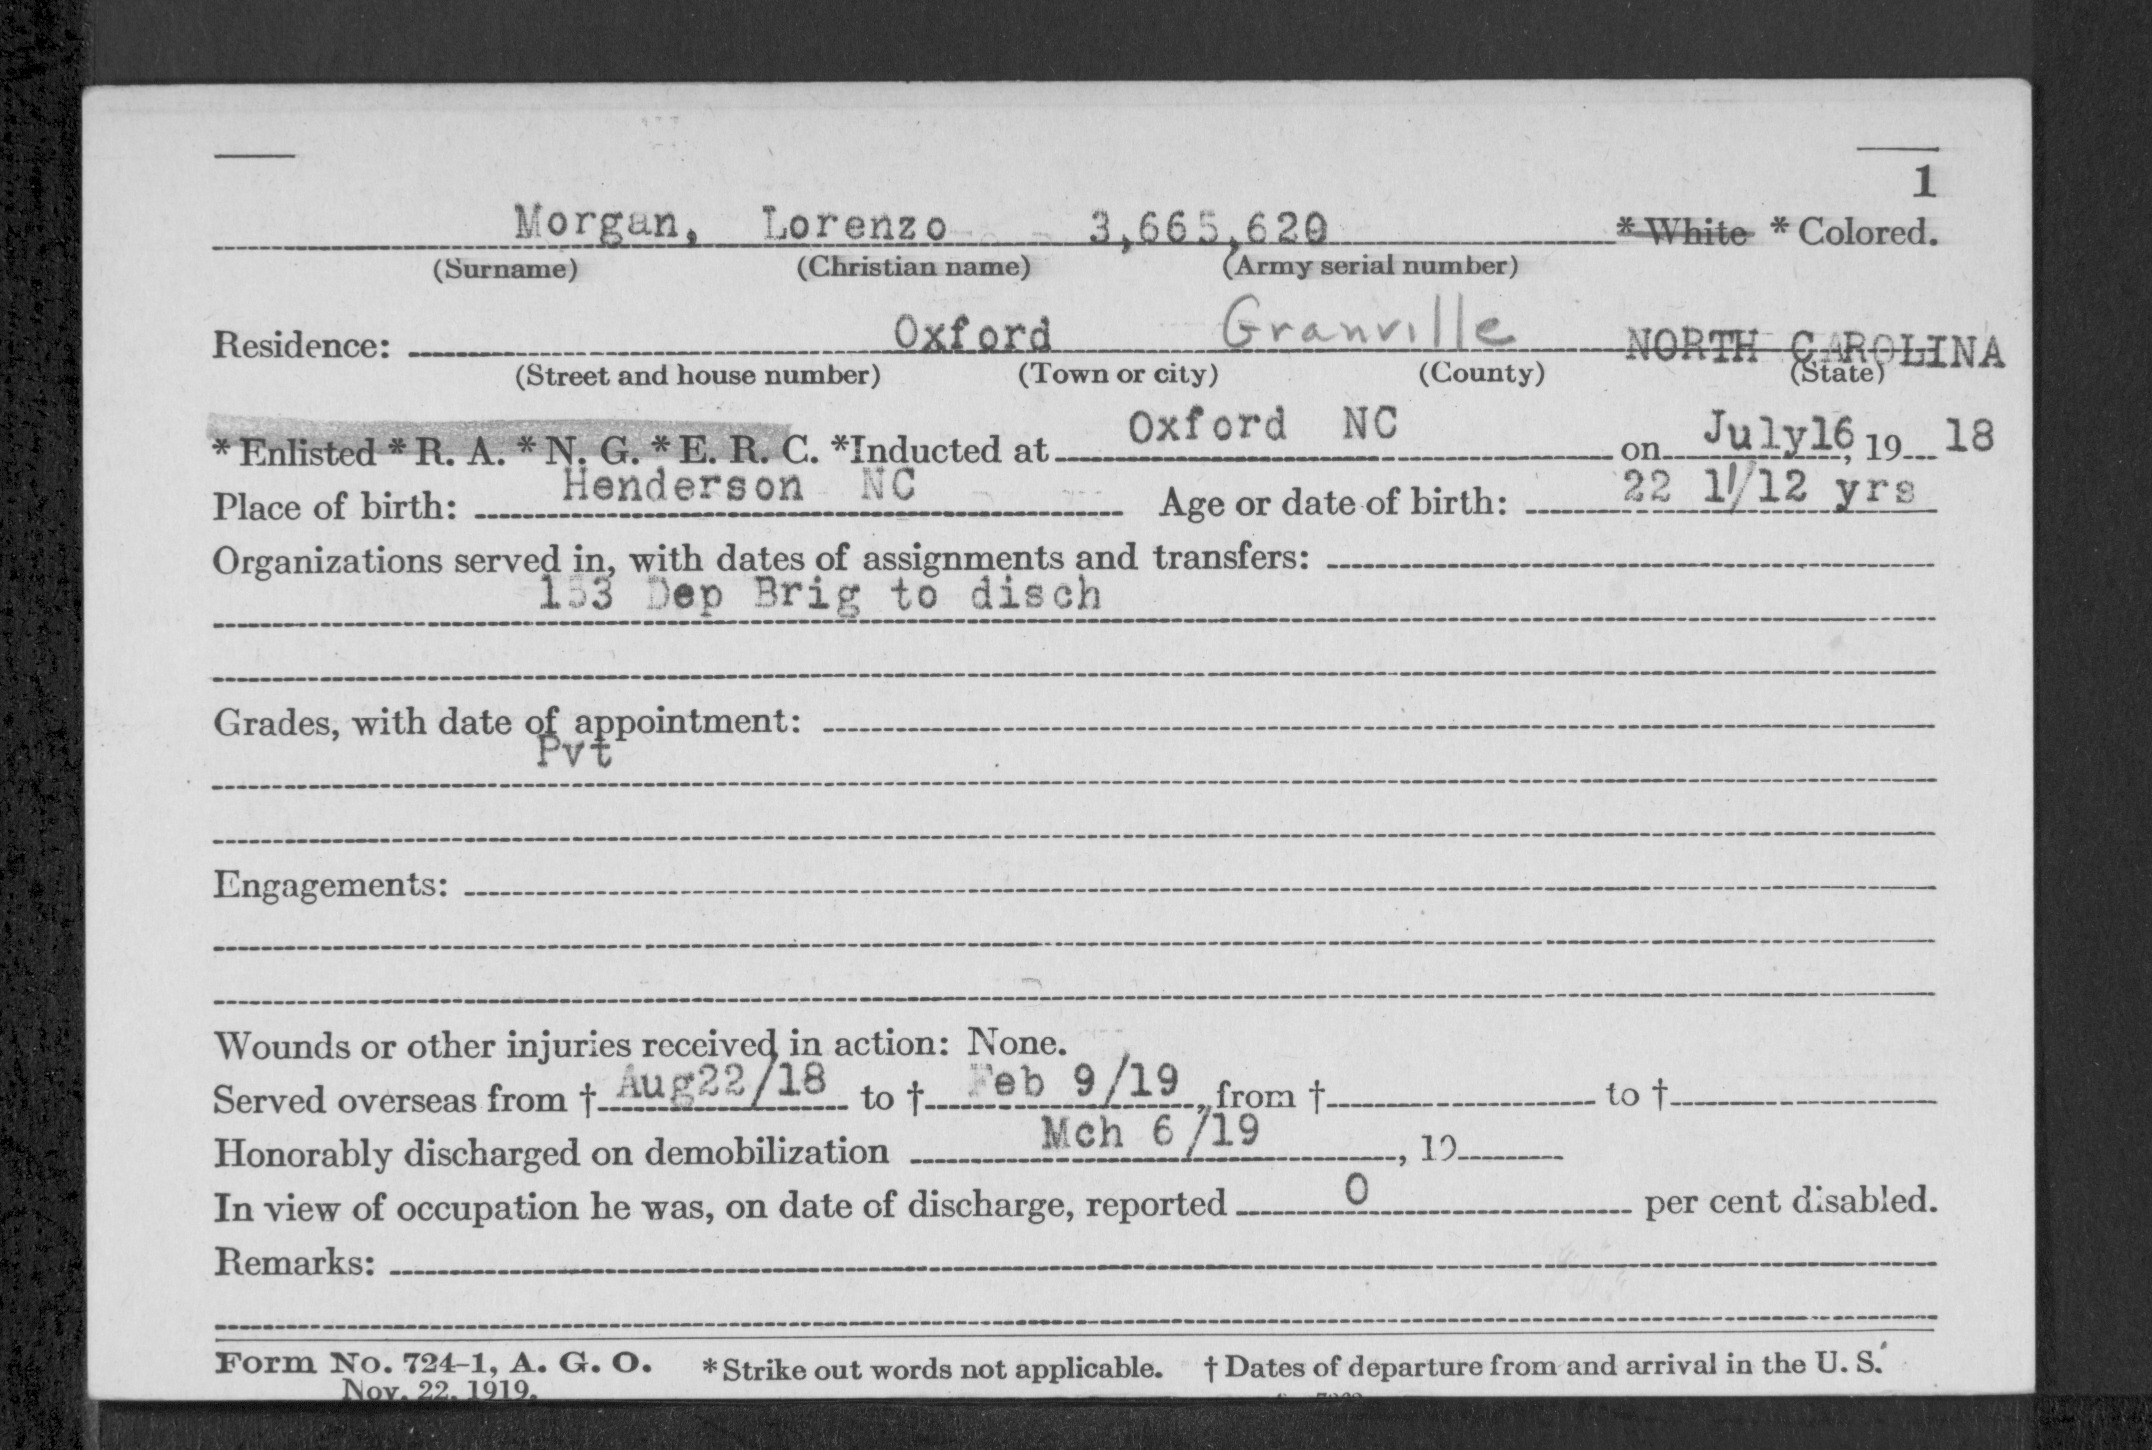 1
Morgan, Lorenzo 3,665,620 * White * Colored.
(Surname) (Christian name) (Army serial number)
Residence: Oxford Granville NORTH CAROLINA
(Street and house number) (Town or city) (County) (State)
* Enlisted * R. A. * N. G. * E. R. C. *Inducted at Oxford NC on July16, 19 18
Place of birth: Henderson NC Age or date of birth: 22 1/12 yrs
Organizations served in, with dates of assignments and transfers:
153 Dep Brig to disch
Grades, with date of appointment:
Pvt
Engagements:
Wounds or other injuries received in action: None.
Served overseas from † Aug22/18 to † Feb 9/19, from † to †
Honorably discharged on demobilization Mch 6/19, 19
In view of occupation he was, on date of discharge, reported 0 per cent disabled.
Remarks:
Form No. 724-1, A. G. O. * Strike out words not applicable. † Dates of departure from and arrival in the U. S.
Nov. 22, 1919.